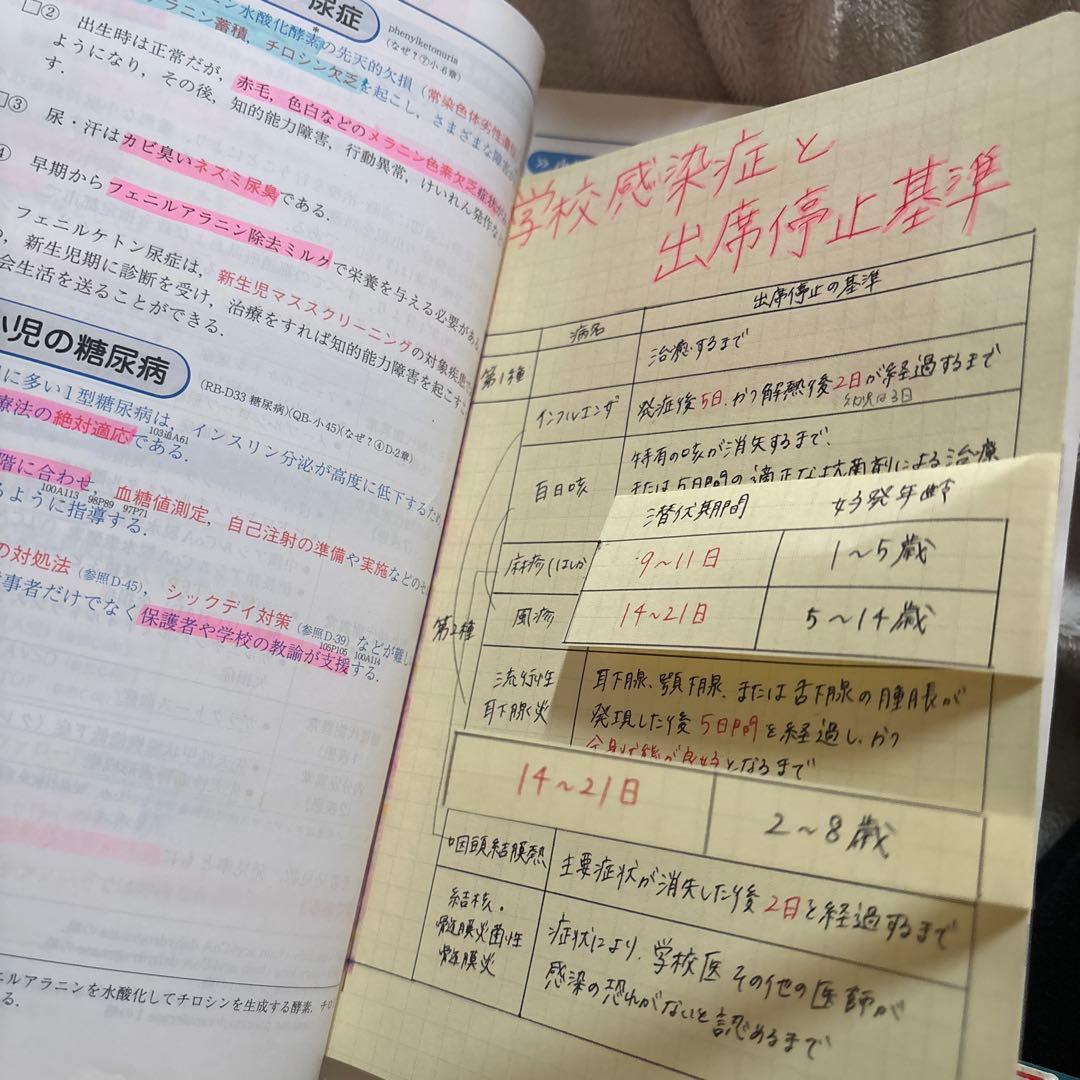 尿症
phenylketonuria
(なぜ?⑦小-6章)
水酸化酵素の先天的欠損(常染色体劣性遺
アラニン蓄積,チロシン欠乏を起こし,さまざまな障害
□② 出生時は正常だが,赤毛,色白などのメラニン色素欠乏症状が
ようになり,その後,知的能力障害,行動異常,けいれん発作など
す.
□③ 尿・汗はカビ臭いネズミ尿臭である.
④ 早期からフェニルアラニン除去ミルクで栄養を与える必要がある
フェニルケトン尿症は,新生児マススクリーニングの対象疾患で
め,新生児期に診断を受け,治療をすれば知的能力障害を起こす
会生活を送ることができる.
小児の糖尿病
(RB-D33 糖尿病)(QB-小45)(なぜ?④D-2章)
に多い1型糖尿病は,インスリン分泌が高度に低下するため
療法の絶対適応である.
103追A61
階に合わせ,血糖値測定,自己注射の準備や実施などのそ
100A113 98P89 97P71
るように指導する.
の対処法(参照D-45),シックデイ対策(参照D-39)などが難し
事者だけでなく保護者や学校の教諭が支援する.
105P105 100A114
ニルアラニンを水酸化してチロシンを生成する酵素.チロ
る.
学校感染症と
出席停止基準
病名 出席停止の基準
第1種 治癒するまで
インフルエンザ 発症後5日.かつ解熱後2日が経過するまで
幼児は3日
百日咳 特有の咳が消失するまで.
または5日間の適正な抗菌剤による治療
潜伏期間 好発年齢
麻疹(はしか 9〜11日 1〜5歳
風疹 14〜21日 5〜14歳
第2種
流行性
耳下腺炎
耳下腺、顎下腺、または舌下腺の腫脹が
発現した後5日間を経過し、かつ
全身状態が良好となるまで
14〜21日 2〜8歳
咽頭結膜熱 主要症状が消失した後2日を経過するまで
結核.
髄膜炎菌性
髄膜炎
症状により、学校医その他の医師が
感染の恐れがないと認めるまで